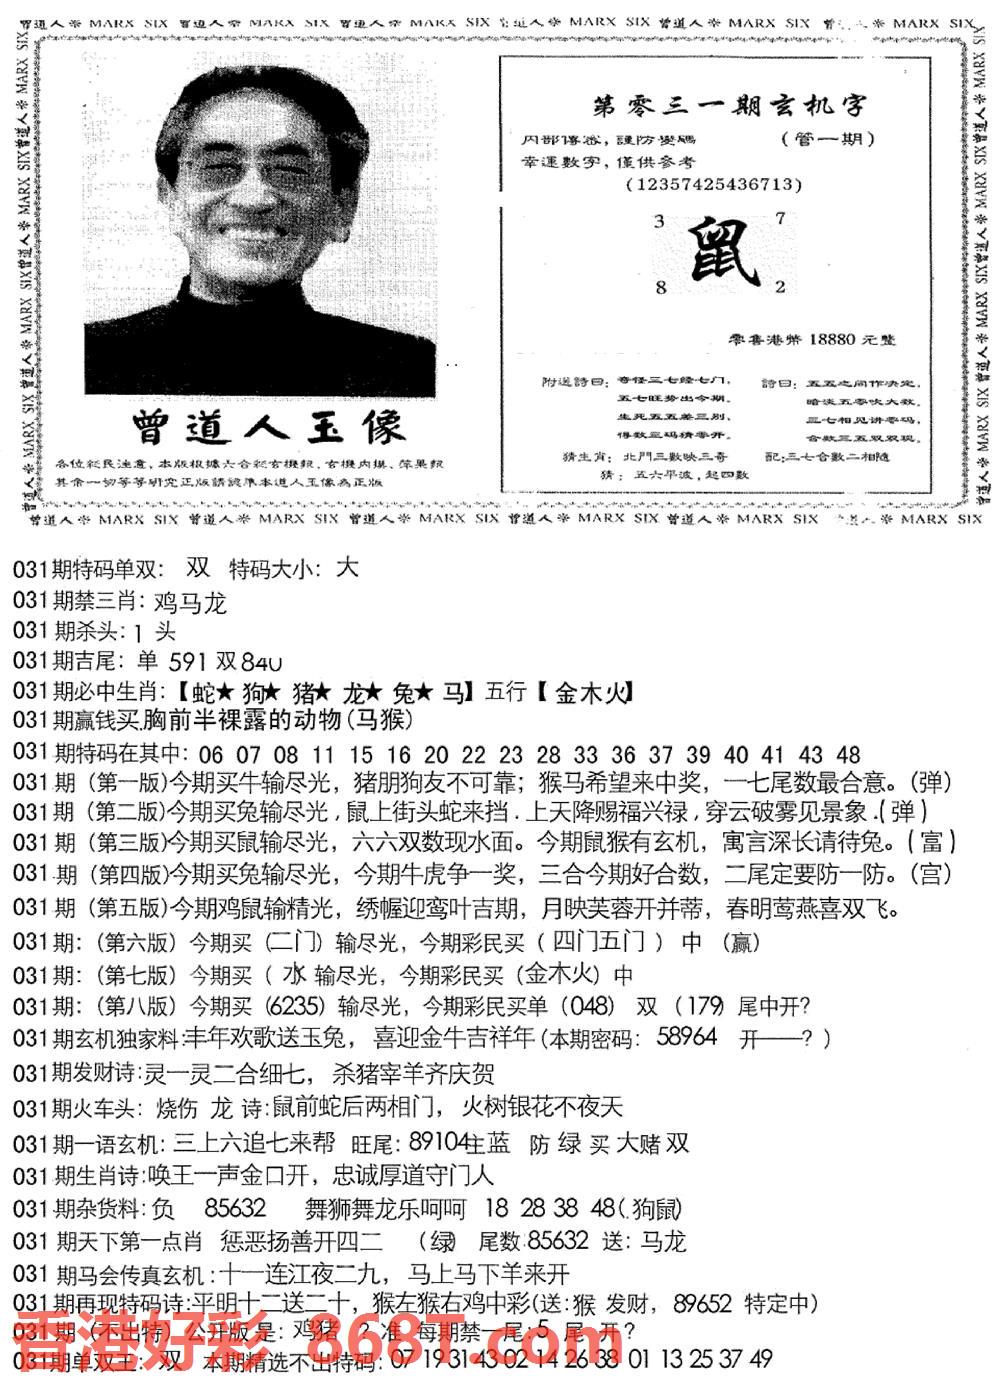 曾道人※ MARX SIX 曾道人※ MARX SIX 曾道人※ MARX SIX 曾道人※ MARX SIX 曾道人※ MARX SIX 曾道人※ MARX SIX
第零三一期玄机字
(管一期)
幸運數字，僅供參考
(12357425436713)
3 7
鼠
8 2
零售港幣 18880 元整
附送詩曰：奇怪三七經七门，
五七旺势出今期。
生死五五差三别，
得数三码猜零开。
詩曰：五五之间作决定，
暗淡五零吹大数。
三七相见讲零码，
合数三五双双现。
猜生肖：北門三數映三奇
配:三七合數二相隨
猜：五六平波，起四數
曾道人玉像
各位彩民注意，本版根據六合彩玄機報、玄機內摸、蘋果報
其余一切等等研究正版請認準本道人玉像為正版
曾道人※ MARX SIX 曾道人※ MARX SIX 曾道人※ MARX SIX 曾道人※ MARX SIX 曾道人※ MARX SIX 曾道人※ MARX SIX
031期特码单双： 双 特码大小：大
031期禁三肖：鸡马龙
031期杀头：1 头
031期吉尾：单 591 双 840
031期必中生肖：【蛇★狗★猪★龙★兔★马】五行【金木火】
031期赢钱买.胸前半裸露的动物(马猴)
031期特码在其中：06 07 08 11 15 16 20 22 23 28 33 36 37 39 40 41 43 48
031期（第一版)今期买牛输尽光，猪朋狗友不可靠；猴马希望来中奖，一七尾数最合意。(弹)
031期（第二版)今期买兔输尽光,鼠上街头蛇来挡.上天降赐福兴禄,穿云破雾见景象.(弹)
031期（第三版)今期买鼠输尽光，六六双数现水面。今期鼠猴有玄机，寓言深长请待兔。(富)
031.期（第四版)今期买兔输尽光，今期牛虎争一奖，三合今期好合数，二尾定要防一防。(宫)
031期（第五版)今期鸡鼠输精光，绣幄迎鸾叶吉期，月映芙蓉开并蒂，春明莺燕喜双飞。
031期：(第六版）今期买（二门）输尽光，今期彩民买（四门五门）中 （赢）
031期：(第七版）今期买（水 输尽光，今期彩民买（金木火）中
031期：(第八版）今期买（6235）输尽光，今期彩民买单（048） 双 （179）尾中开?
031期玄机独家料:丰年欢歌送玉兔，喜迎金牛吉祥年(本期密码：58964 开——? )
031期发财诗:灵一灵二合细七，杀猪宰羊齐庆贺
031期火车头：烧伤 龙 诗:鼠前蛇后两相门，火树银花不夜天
031期一语玄机：三上六追七来帮 旺尾：89104主蓝 防 绿 买 大赌 双
031期生肖诗:唤王一声金口开，忠诚厚道守门人
031期杂货料:负 85632 舞狮舞龙乐呵呵 18 28 38 48(.狗鼠)
031 期天下第一点肖 惩恶扬善开四二 （绿） 尾数:85632 送：马龙
031 期马会传真玄机:十一连江夜二九，马上马下羊来开
031期再现特码诗:平明十二送二十，猴左猴右鸡中彩(送:猴 发财，89652 特定中)
031期（不出特）公开版是：鸡猪 准 每期禁一尾:5 尾 开?
031期单双王：双 本期精选不出特码：07 19 31 43 02 14 26 38 01 13 25 37 49
香港好彩 868T.com